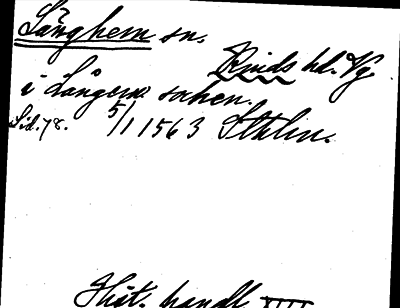 Långhem sn.
Kinds hd. Vg.
i Långem socken.
Sid. 78. 5/1 1563 Sthlm.
Hist. handl. XIII